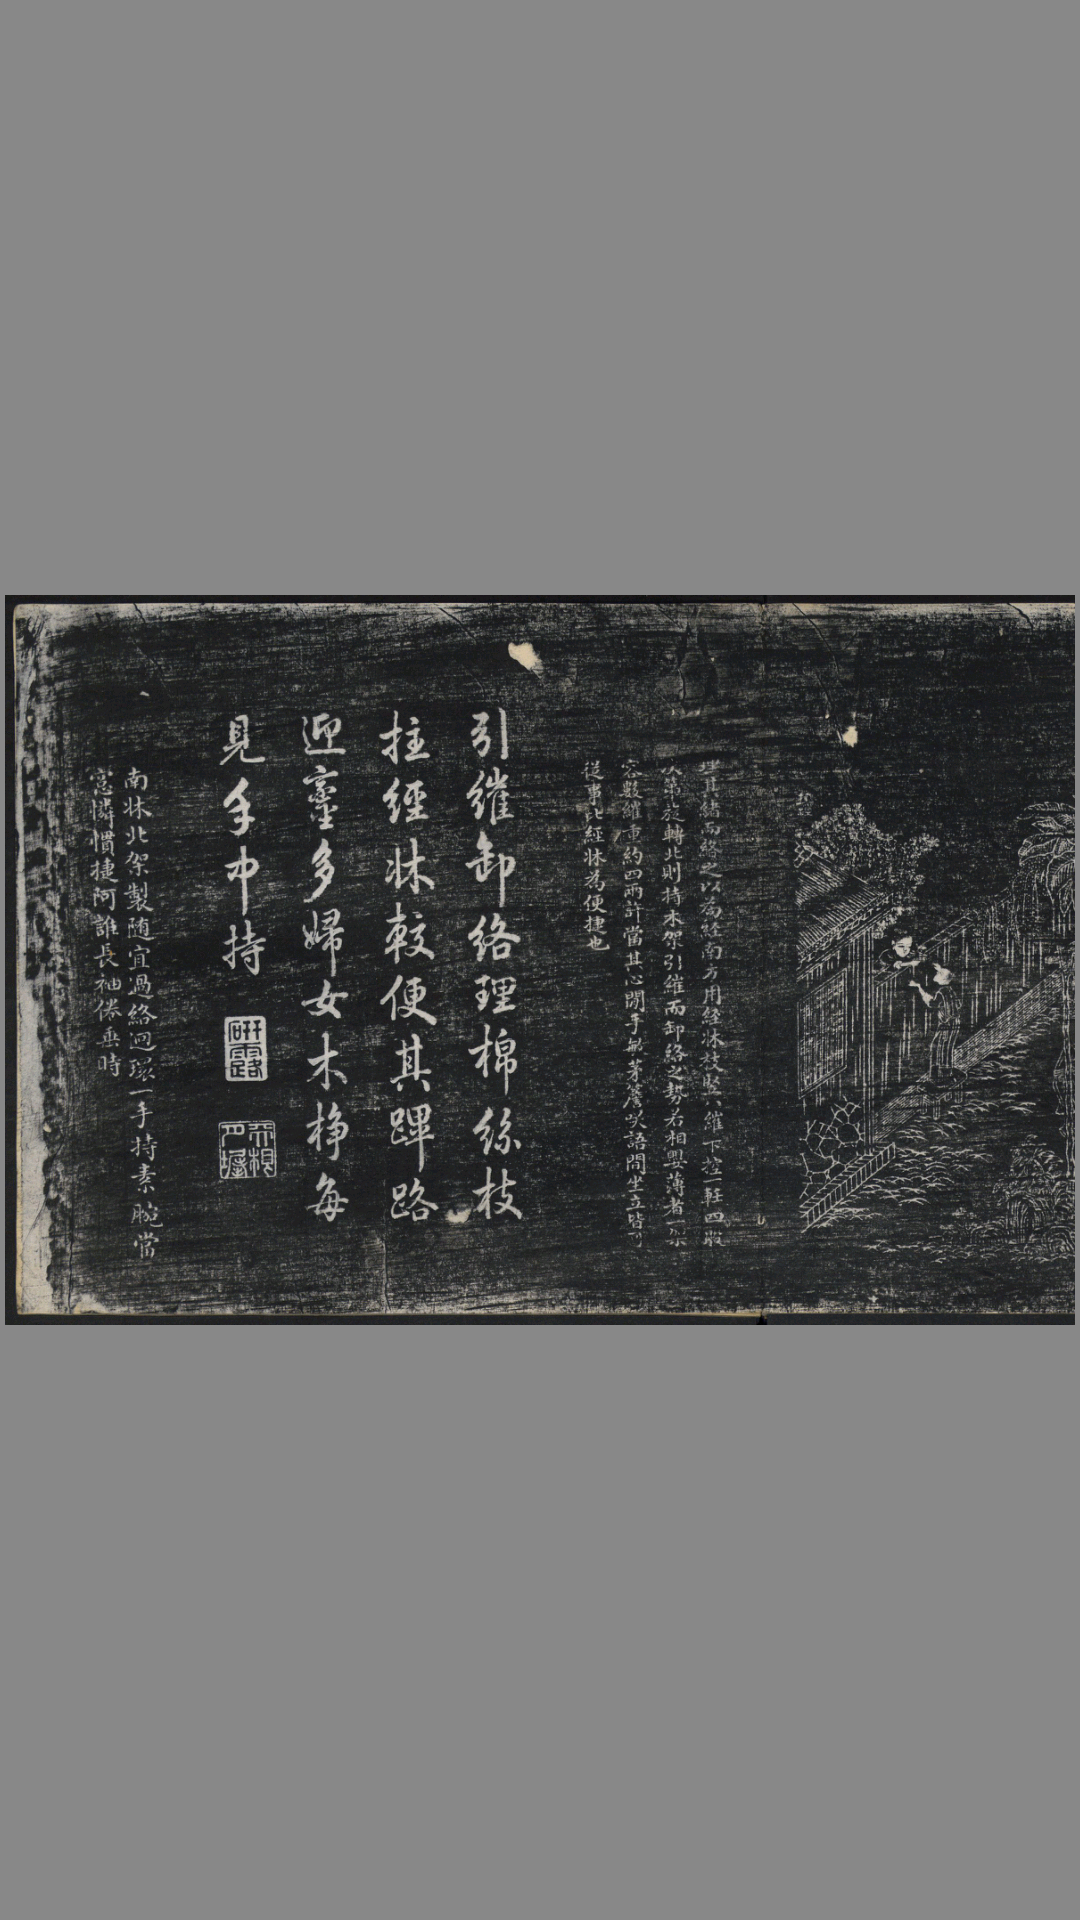 理其緒而絡之以為經南方用經牀枝竪八維下控一軠四股
次第旋轉北則持木架引維而卸絡之勢若相輿薄者一架
容數維重約四兩許當其心閒手敏茅簷笑語間坐立皆可
從事比經牀為便捷也
引繀卸絡理棉絲枝
拄經牀較便其蹕路
迎鑾多婦女木挣每
見手中持
研露
南牀北架製随宜過絡迴環一手持素腕當
窓憐慣捷阿誰長袖倦垂時